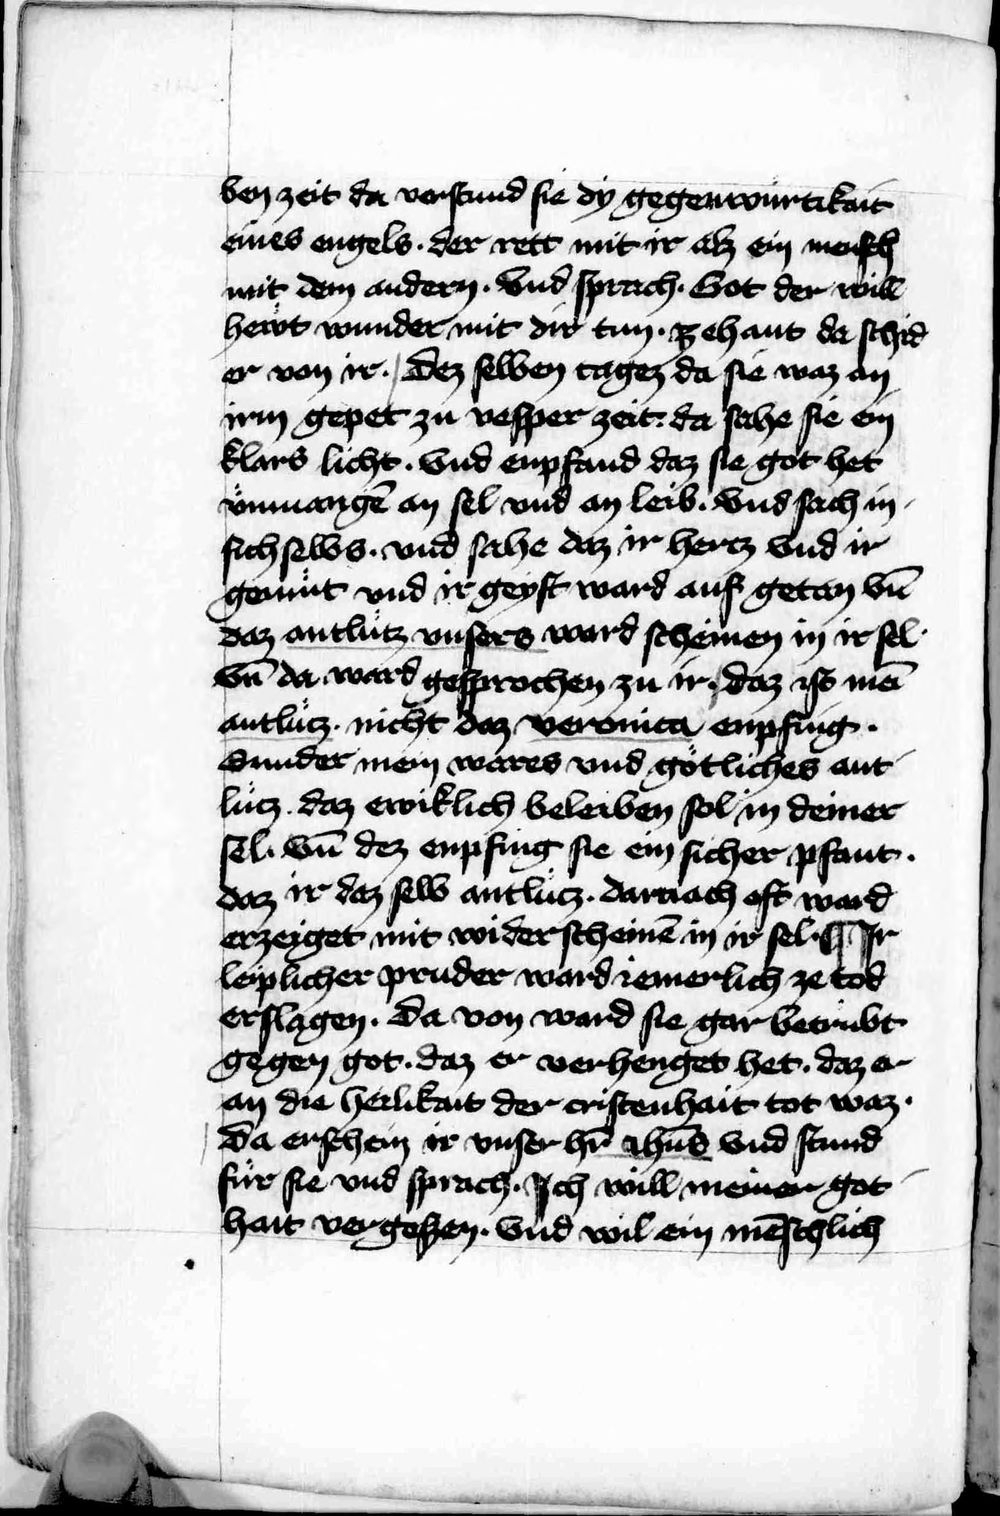 ben zeit da verstund sie dy gegenwürtikait
eines engels. der rett mit ir alz ein mensch
mit dem andern. Vnd sprach. Got der will
hewt wunder mit dir tun. zehant da schid
er von ir. Dez selben tagez da sie waz an
irm gepet zu vesper zeit. da sahe sie ein
klars licht. Vnd enpfand daz sie got het
vmuangē an sel vnd an leib. Vnd sach in
sich selbs. vnd sahe daz ir hertz vnd ir
gemüt vnd ir geyst ward auf getan vn̄
daz antlütz vnsers ward scheinen in ir sel.
vn̄ da ward gesprochen zu ir. daz ist mei
antlütz. nicht daz veronica enpfing.
Sunder mein wares vnd götliches ant
lütz. daz ewiklich beleiben sol in deiner
sel. vn̄ dez enpfing sie ein sicher pfant.
daz ir daz selb antlütz. darnach oft ward
erzeiget mit widerscheinē in ir sel. ¶ Ir
leiplicher pruder ward iemerlich ze tod
erslagen. Da von ward sie gar betrübt
gegen got. daz er verhenget het. daz er
an die heilikait der cristenhait tot waz.
Da erschein ir vnser hr̄ ihūs vnd stund
für sie vnd sprach. Ich will meiner got
hait vergeßen. Vnd wil ein mēschlich